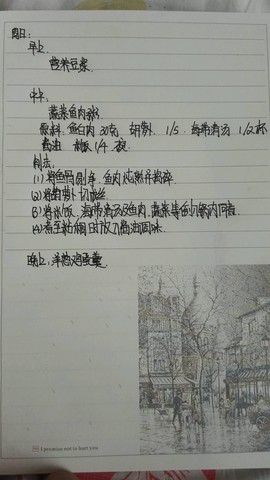 周日:
早上
营养豆浆.
中午:
蔬菜鱼肉粥
原料. 鱼白肉 30克 胡萝卜 1/5 海带清汤 1/2杯
酱油 1/4
制法:
(1) 将鱼骨剔净, 鱼肉炖熟并捣碎.
(2) 将萝卜切
(3) 将米饭、海带清汤及鱼肉、蔬菜等倒入锅内同煮.
(4) 煮至粘稠时放入酱油调味.
晚上: 羊奶鸡蛋羹
I promise not to hurt you